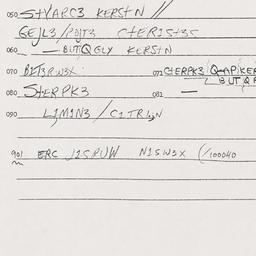 050 STVARC3 KERSTN //
GEJL3/POJT3 CTERIST3S
060 — — BUTQELY KERSTN
070 BITSRW3X. 071 CTERPK3 Q-APIKER
BUTQ
080 STERPK3 081 —
090 LIMIN3 / CITRIN
901 ERC JISRUW NISW3X (/100040